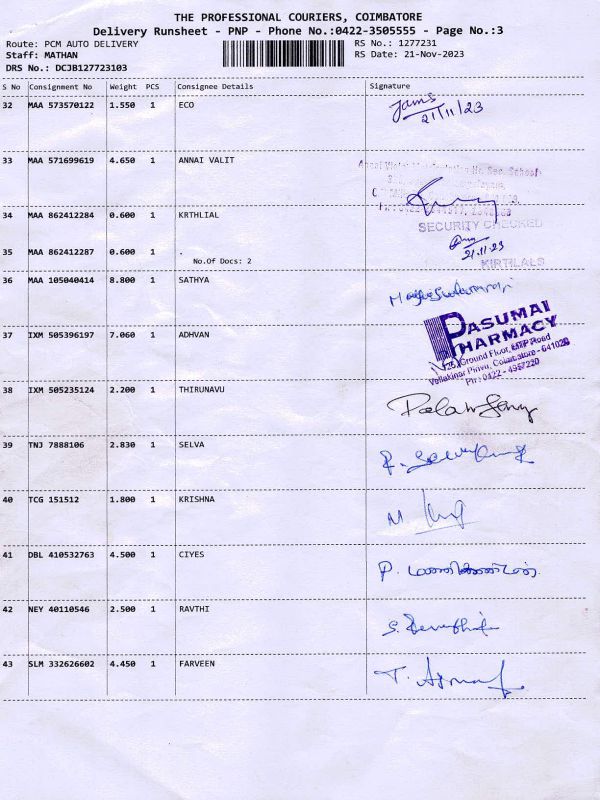 THE PROFESSIONAL COURIERS, COIMBATORE
Delivery Runsheet - PNP - Phone No.:0422-3505555 - Page No.:3
Route: PCM AUTO DELIVERY RS No.: 1277231
Staff: MATHAN RS Date: 21-Nov-2023
DRS No.: DCJB127723103
S No Consignment No Weight PCS Consignee Details Signature
32 MAA 573570122 1.550 1 ECO
21/11/23
33 MAA 571699619 4.650 1 ANNAI VALIT
34 MAA 862412284 0.600 1 KRTHLIAL
SECURITY CHECKED
35 MAA 862412287 0.600 1 .
21.11.23
No.Of Docs: 2
KIRTILALS
36 MAA 105040414 8.800 1 SATHYA
PASUMAI
PHARMACY
Ground Floor, MTP Road
Vellakinar Pirivu, Coimbatore - 641029
Ph : 0422 - 4957220
37 IXM 505396197 7.060 1 ADHVAN
38 IXM 505235124 2.200 1 THIRUNAVU
39 TNJ 7888106 2.830 1 SELVA
40 TCG 151512 1.800 1 KRISHNA
41 DBL 410532763 4.500 1 CIYES
42 NEY 40110546 2.500 1 RAVTHI
43 SLM 332626602 4.450 1 FARVEEN